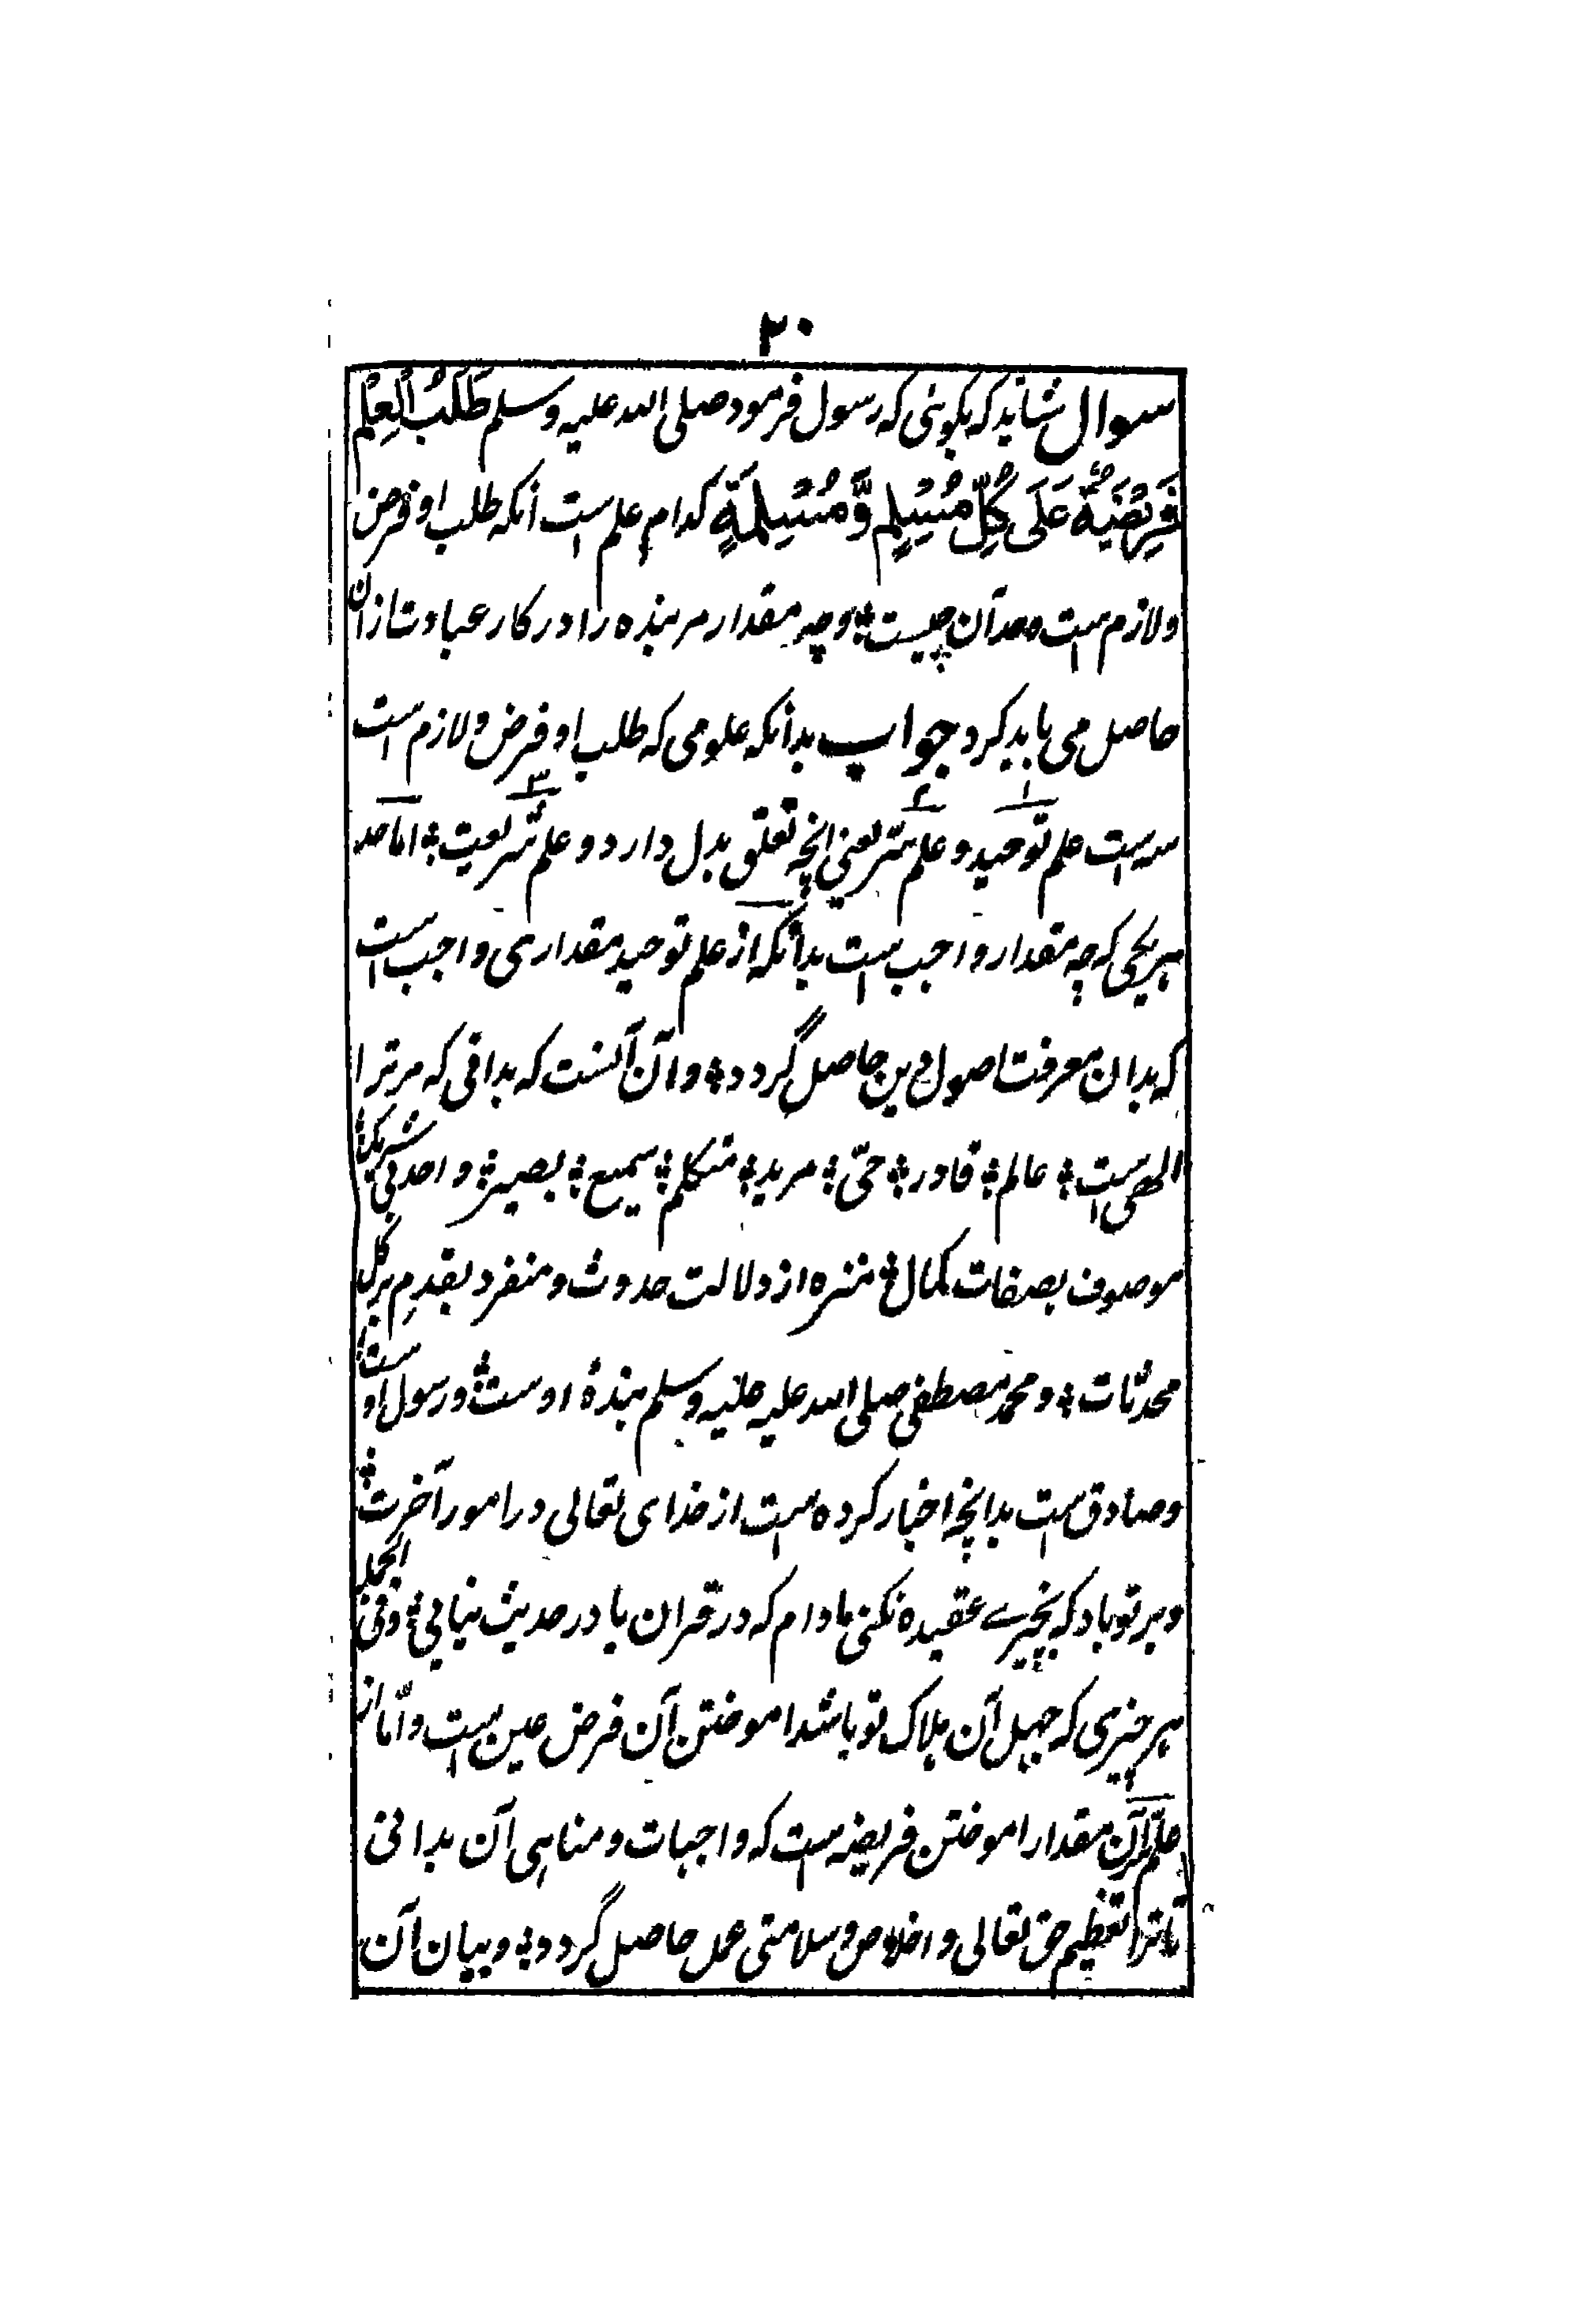 ۲۰
سوال شاید که بگوئی که رسول فرمود صلی الله علیه وسلم طَلَبُ الْعِلْمِ
فَرِیْضَةٌ عَلَی کُلِّ مُسْلِمٍ وَّ مُسْلِمَةٍ کدام علم است انکه طلب او فرض
و لازم است و حد آن چیست ؛ و چه مقدار مر بنده را در کار عبادت از ان
حاصل می باید کرد جواب بدانکه علومی که طلب او فرض و لازم است
سه است علم توحید و علم سر یعنی انچه تعلق بدل دارد و علم شریعت ؛ اما حد
هر یکی که چه مقدار واجب است بدانکه از علم توحید مقداری واجب است
که بدان معرفت اصول دین حاصل گردد ؛ و آن آنست که بدانی که مر ترا
الهی است ؛ عالم ؛ قادر ؛ حیّ ؛ مرید ؛ متکلم ؛ سمیع ؛ بصیر ؛ واحد بی شریک ؛
موصوف بصفات کمال ؛ منزه از دلالت حدوث و منفرد بقدم بر کل
محدثات ؛ و محمد مصطفی صلی الله علیه علیه وسلم بندۀ اوست ؛ و رسول او ست ؛
و صادق است بدانچه اخبار کرده است از خدای تعالی در امور آخرت ؛
و بر تو باد که بچیزے عقیده نکنی مادام که در قران یا در حدیث نیابی ؛ و فی الجمله
هر چیزی که جهل آن هلاک تو باشد اموختن آن فرض عین است و اما از
علم سر آن مقدار اموختن فریضه است که واجبات و مناهی آن بدانی
تا ترا تعظیم حق تعالی و اخلاص و سلامتی عمل حاصل گردد ؛ و بیان آن